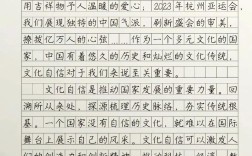 用吉祥物予人温暖的爱心，2023年杭州亚运会
我们展现独特的中国气派，刷新盛会的审美，
撩拨亿万人的心弦。作为一个多元文化的国
家，中国有着悠久的历史和灿烂的文化传统，
文化自信对于我们来说至关重要。
文化自信是推动国家发展的重要力量。回
溯所从来处，探源梳理历史脉络，夯实传统根
基。一个国家没有自信的文化，就难以在国际
舞台上展示自己的风采。文化自信可以激发人
们的创造力和创新精神，